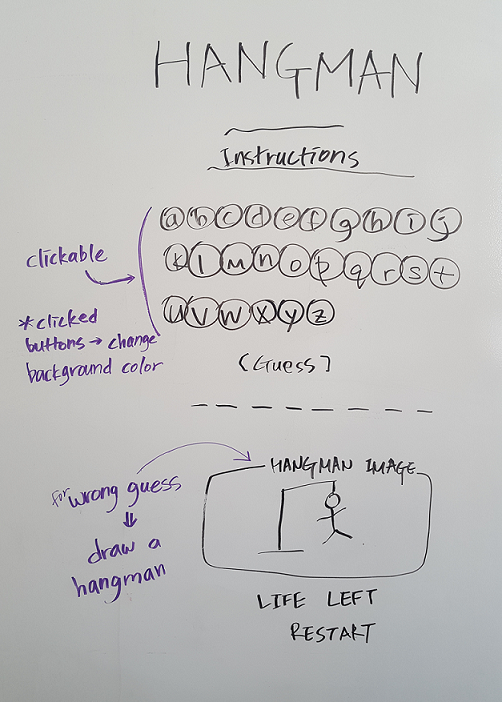 HANGMAN
Instructions
a b c d e f g h i j
k l m n o p q r s t
u v w x y z
clickable
*clicked
buttons → change
background color
[Guess]
HANGMAN IMAGE
for wrong guess
draw a
hangman
LIFE LEFT
RESTART